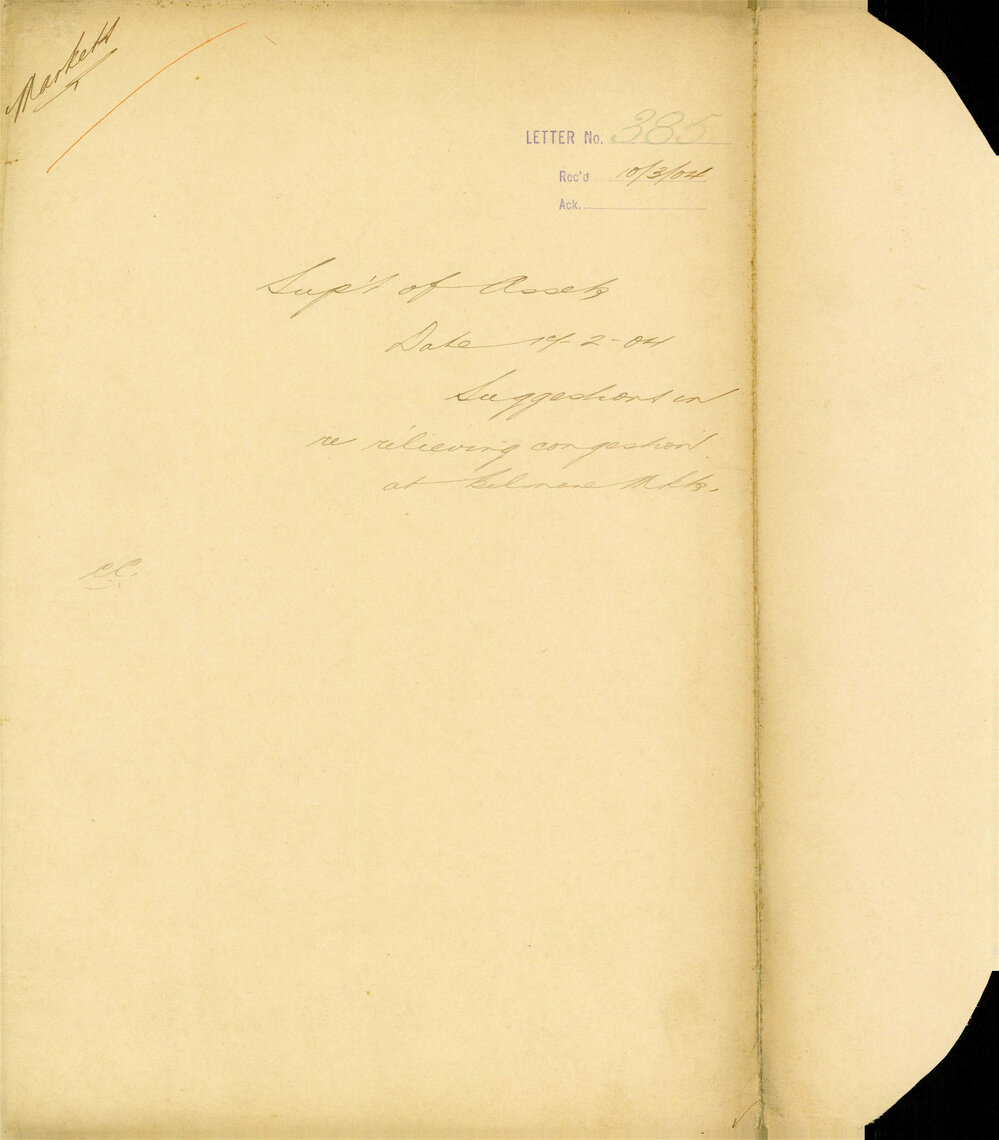 Markets
LETTER No. 385
Rec'd 10/3/04
Ack.
Sup't of Assets
Date 17-2-04
Suggestions in
re relieving congestion
at Gilmore Mkts.
C.C.